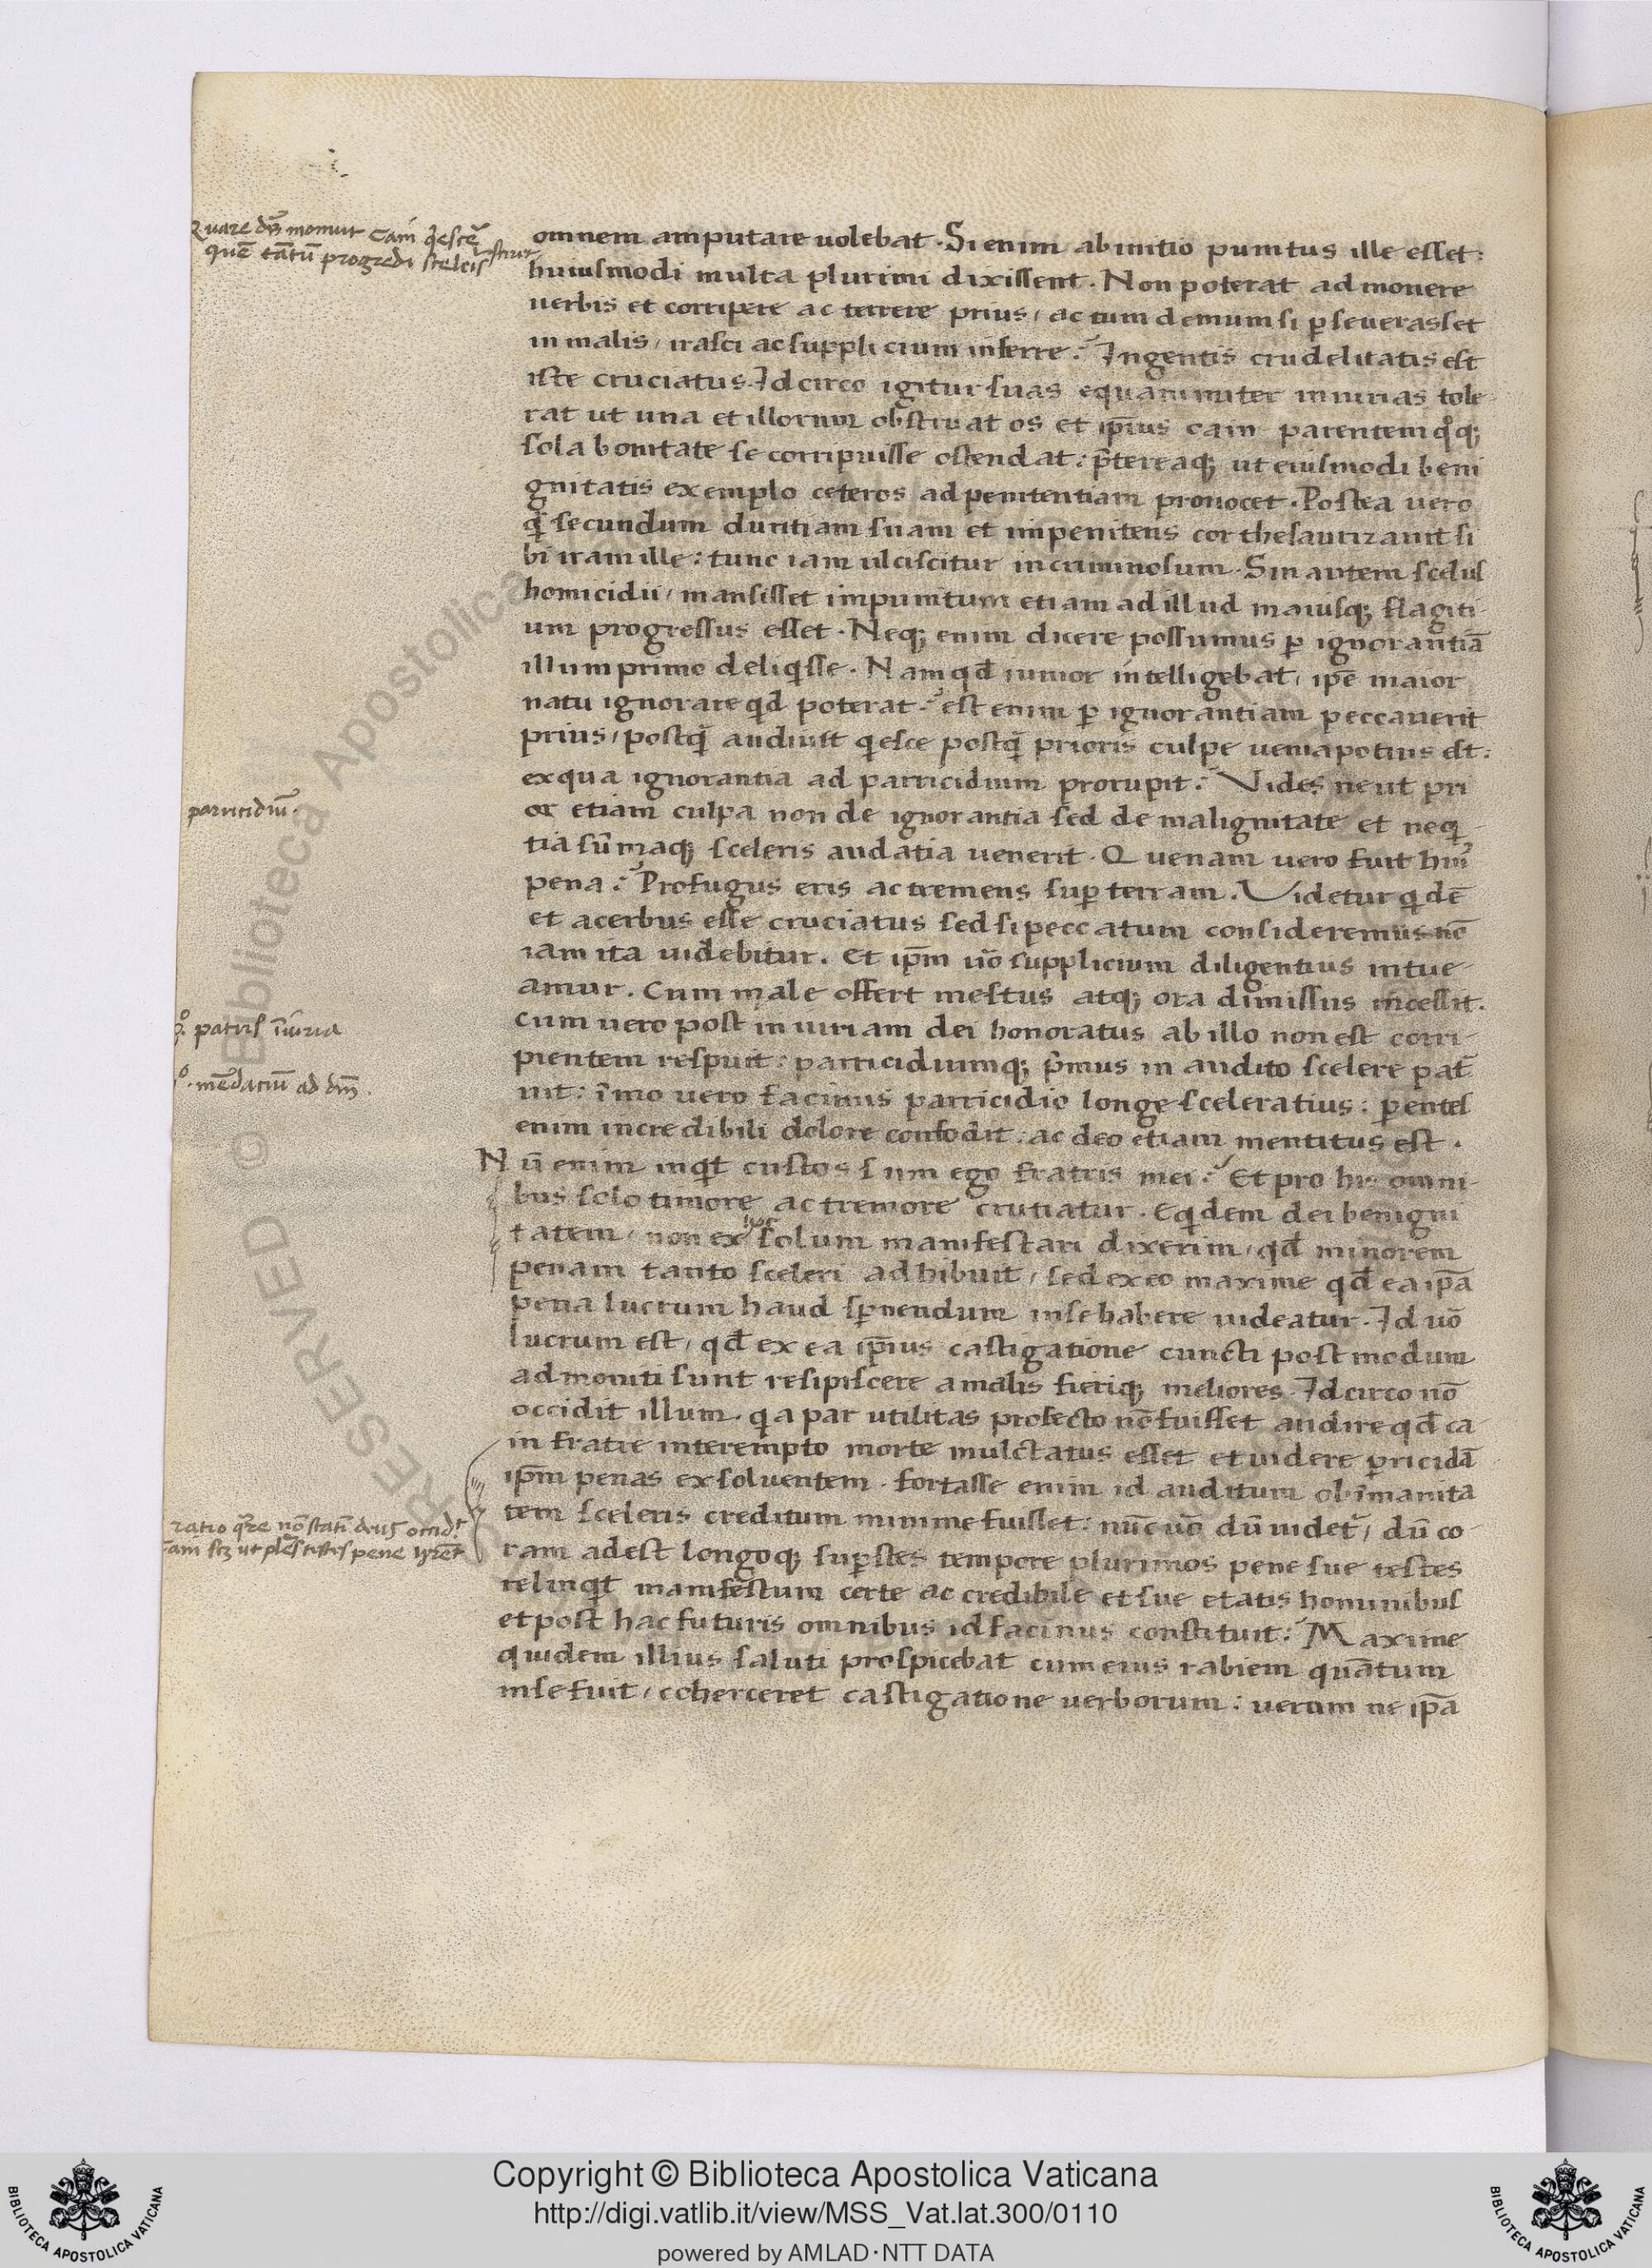 Quare dn̄s monuit Cain q̄escē
quē tātū progredi sceleris
omnem amputare uolebat. Si enim ab initio punitus ille esset:
huiusmodi multa plurimi dixissent. Non poterat admonere
uerbis et corripere ac terrere prius, ac tum demum si ꝑseuerasset
in malis, irasci ac supplicium inferre? Ingentis crudelitatis est
iste cruciatus. Idcirco igitur suas equanimiter iniurias tole
rat ut una et illorum obstruat os et ip̄ius cain parentem qͦqꝫ
sola bonitate se corripuisse ostendat: p̄tereaqꝫ ut eiusmodi beni
gnitatis exemplo ceteros ad penitentiam prouocet. Postea uero
q̄ secundum duritiam suam et impenitens cor thesaurizauit si
bi iram ille: tunc iam ulciscitur in criminosum. Sin autem scelus
homicidii, mansisset impunitum etiam ad illud maiusqꝫ flagiti-
um progressus esset. Neqꝫ enim dicere possumus ꝑ ignorantiā
illum primo deliqisse. Nam qd̄ iunior intelligebat, ip̄e maior
natu ignorare qd̄ poterat? est enim ꝑ ignorantiam peccauerit
prius, postq̄ audiuit qiesce postq̄ prioris culpe uenia potius est:
ex qua ignorantia ad parricidium prorupit? Vides ne ut pri
or etiam culpa non de ignorantia sed de malignitate et neq-
parricidiū.
tia sūmaqꝫ sceleris audatia uenerit. Quenam uero fuit hui᾽
pena? Profugus eris ac tremens suꝑ terram. Videtur qidē
et acerbus esse cruciatus sed si peccatum consideremus nō
iam ita uidebitur. Et ip̄m uō supplicium diligentius intue-
amur. Cum male offert mestus atqꝫ ora dimissus incessit.
cum uero post iniuriam dei honoratus ab illo non est corri-
pꝰ. patris īiuria
pientem respuit: parricidiumqꝫ p̄mus inaudito scelere pat̄
ꝰ. mēdaciū ad dm̄.
uit: īmo uero facinus parricidio longe sceleratius: ꝑentes
enim incredibili dolore confodit: ac deo etiam mentitus est.
Nū enim inqt̄ custos sum ego fratris mei? Et pro his omni-
bus solo timore ac tremore crutiatur. Eqidem dei benigni
tatem, non ex ipse solum manifestari dixerim, qd̄ minorem
penam tanto sceleri adhibuit, sed ex eo maxime qd̄ ea ip̄a
pena lucrum haud sꝑnendum in se habere uideatur. Id uō
lucrum est, qd̄ ex ea ip̄ius castigatione cuncti postmodum
admoniti sunt resipiscere a malis fieriqꝫ meliores. Idcirco nō
occidit illum. qa par utilitas profecto nō fuisset audire qd̄ ca
in fratre interempto morte mulctatus esset et uidere ꝑricidā
ip̄m penas exsoluentem. fortasse enim id auditum ob īmanita
tem sceleris creditum minime fuisset: nūc uō dū uidet᷑, dū co-
ratio q̄re nō statī deus occidᵗ
ram adest longoqꝫ suꝑstes tempore plurimos pene sue testes
relinqt̄ manifestum certe ac credibile et sue etatis hominibus
et post hac futuris omnibus id facinus constituit? Maxime
quidem illius saluti prospicebat cum eius rabiem quātum
in se fuit, coherceret castigatione uerborum: uerum ne ip̄a
Copyright © Biblioteca Apostolica Vaticana
http://digi.vatlib.it/view/MSS_Vat.lat.300/0110
powered by AMLAD·NTT DATA
BIBLIOTECA APOSTOLICA VATICANA
BIBLIOTECA APOSTOLICA VATICANA